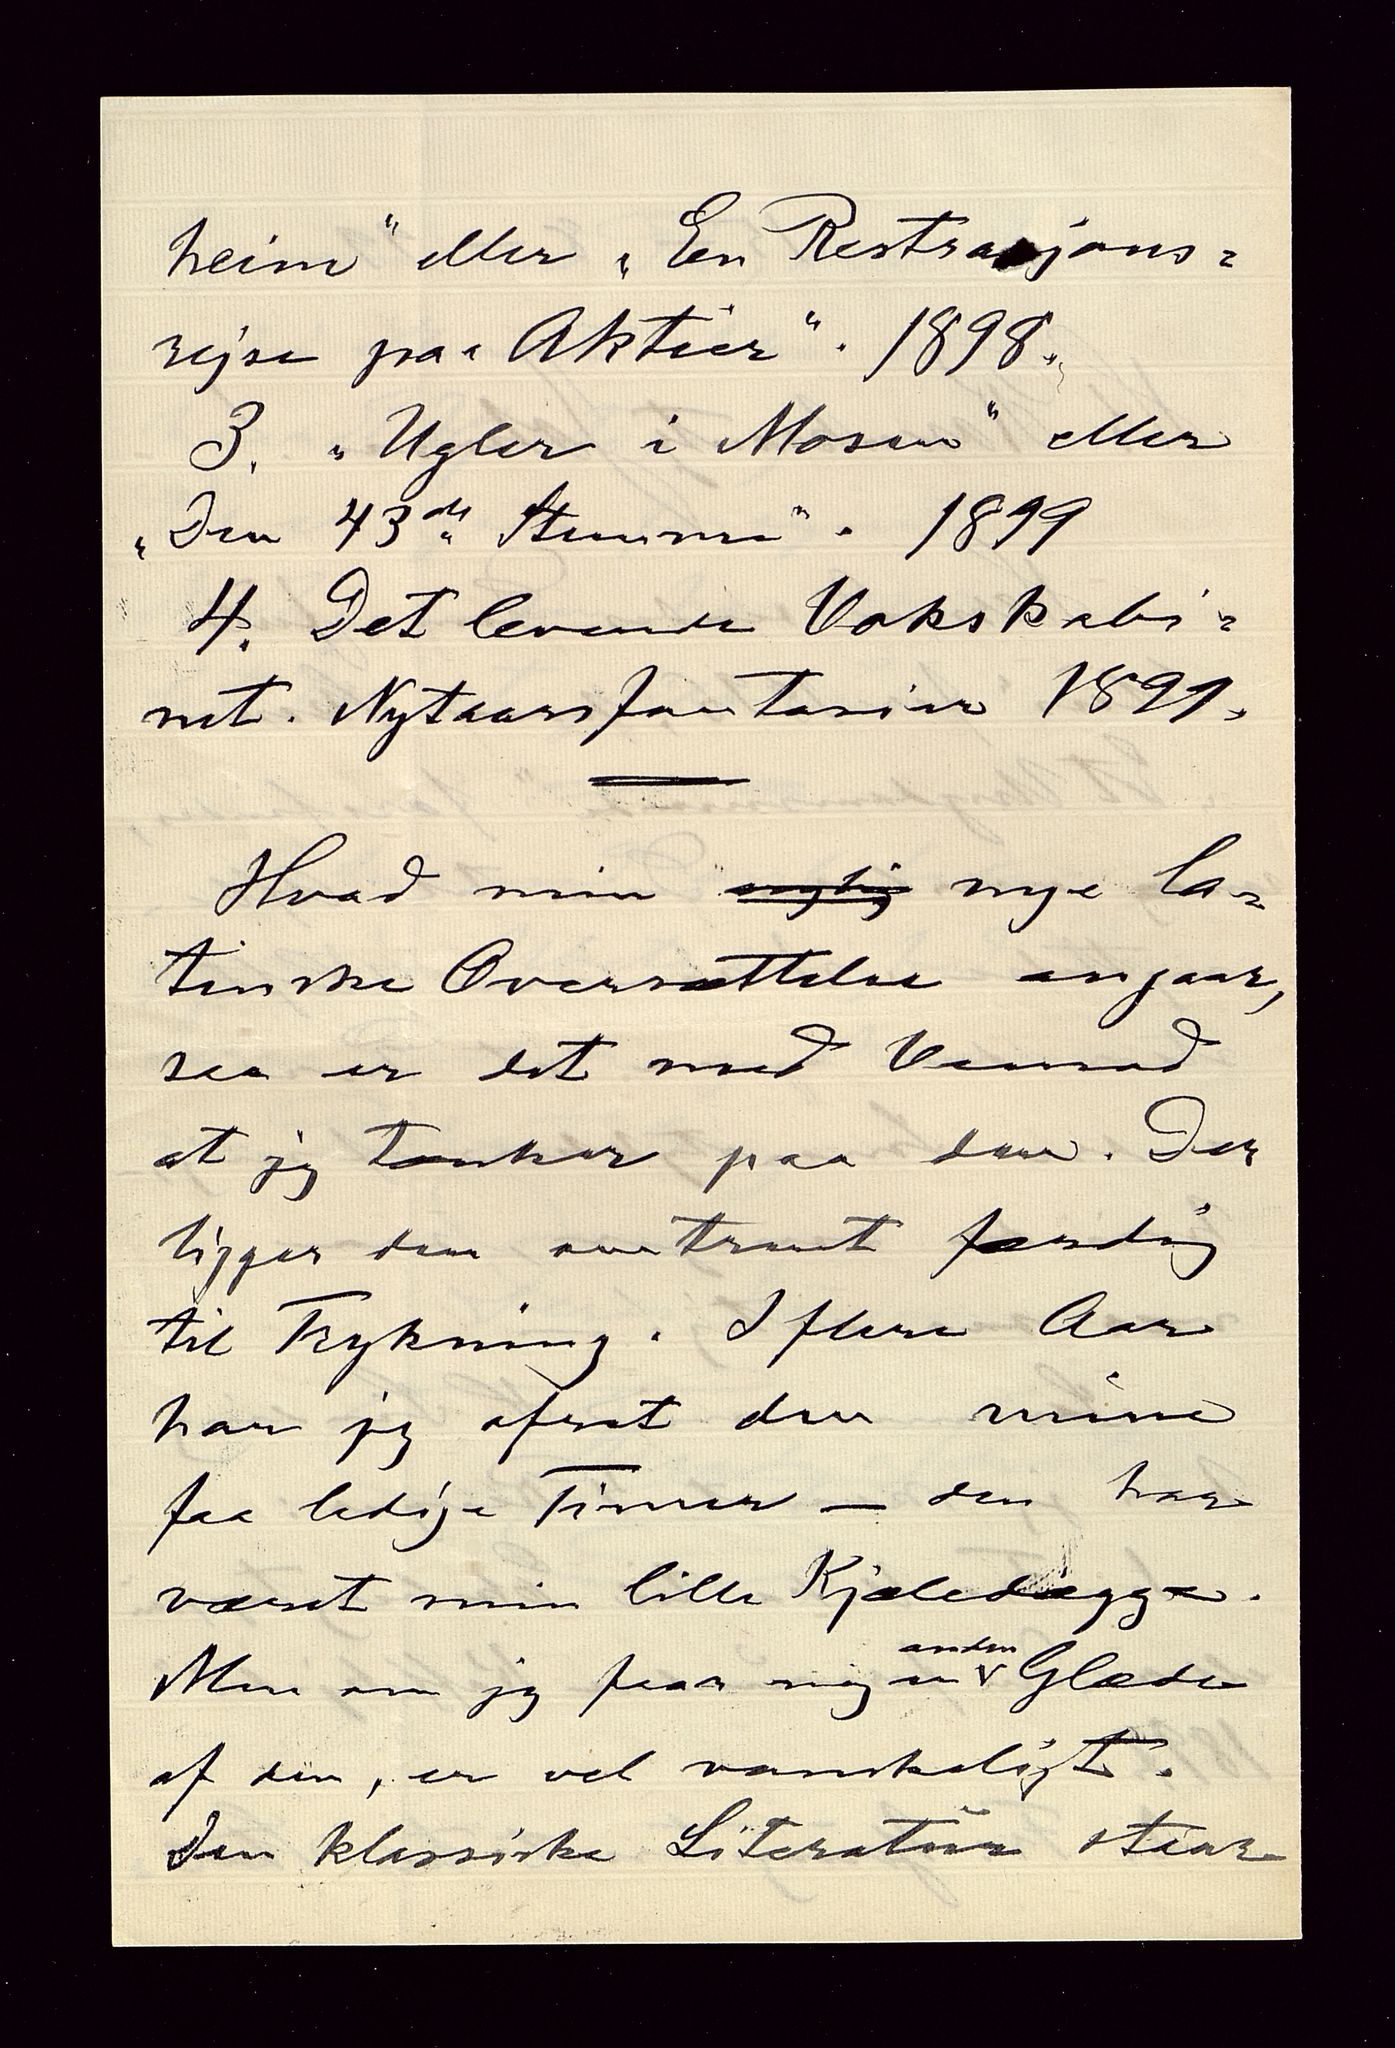 heim" eller „En Restrasjons=
rejse paa Aktier". 1898.
3. „Ugler i Mosen" eller
„Den 43de Stemme". 1899
4. Det levende Vokskabi=
net. Nytaarsfantasier 1899.
Hvad min nye la=
tinske Oversættelse angaar,
saa er det med Vemod
at jeg tænker paa den. Der
ligger den omtrent færdig
til Trykning. I flere Aar
har jeg ofret den mine
faa ledige Timer — den har
været min lille Kjæledægge.
Men om jeg faar nogen anden Glæde
af den, er vel vanskeligt.
Den klassiske Literatur staar